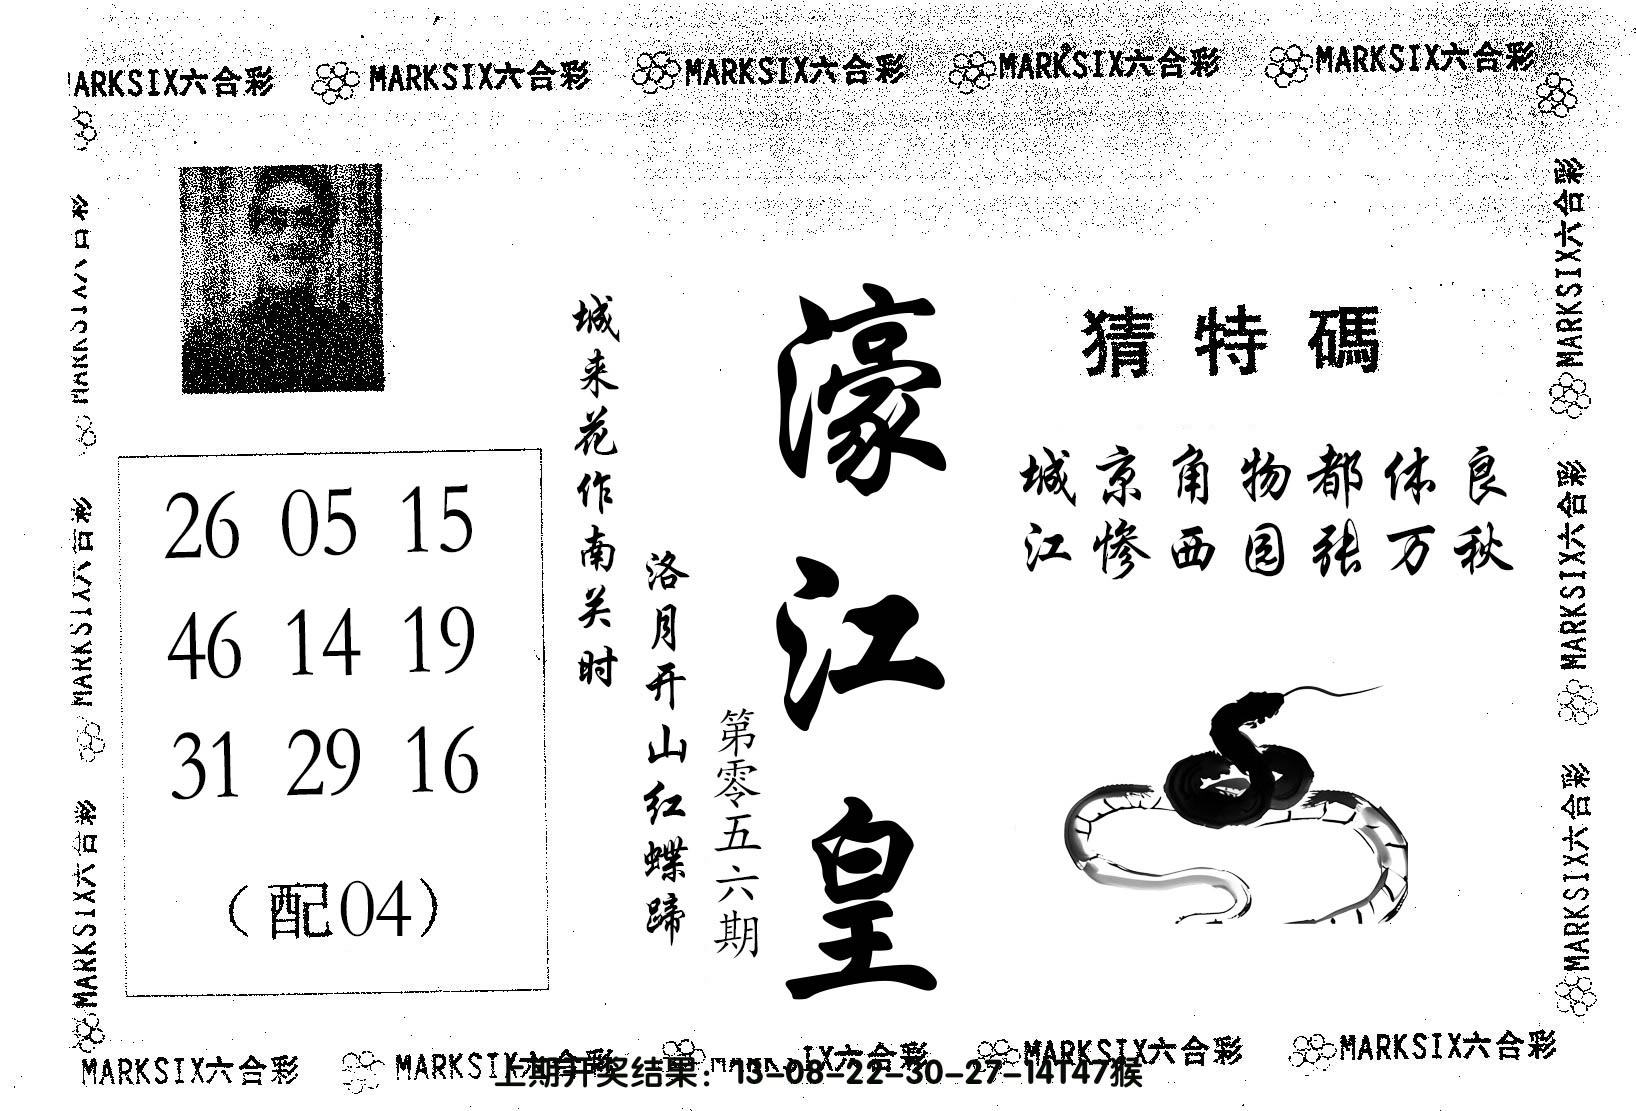 MARKSIX六合彩 MARKSIX六合彩 MARKSIX六合彩 MARKSIX六合彩
猜特碼
城京角物都体良
江惨西园张万秋
濠江皇
第零五六期
洛月开山红蝶蹄
城来花作南关时
26 05 15
46 14 19
31 29 16
（配04）
MARKSIX六合彩
MARKSIX六合彩
MARKSIX六合彩
MARKSIX六合彩
MARKSIX六合彩
MARKSIX六合彩 MARKSIX六合彩 MARKSIX六合彩 MARKSIX六合彩
上期开奖结果：13-08-22-30-27-14T47猴